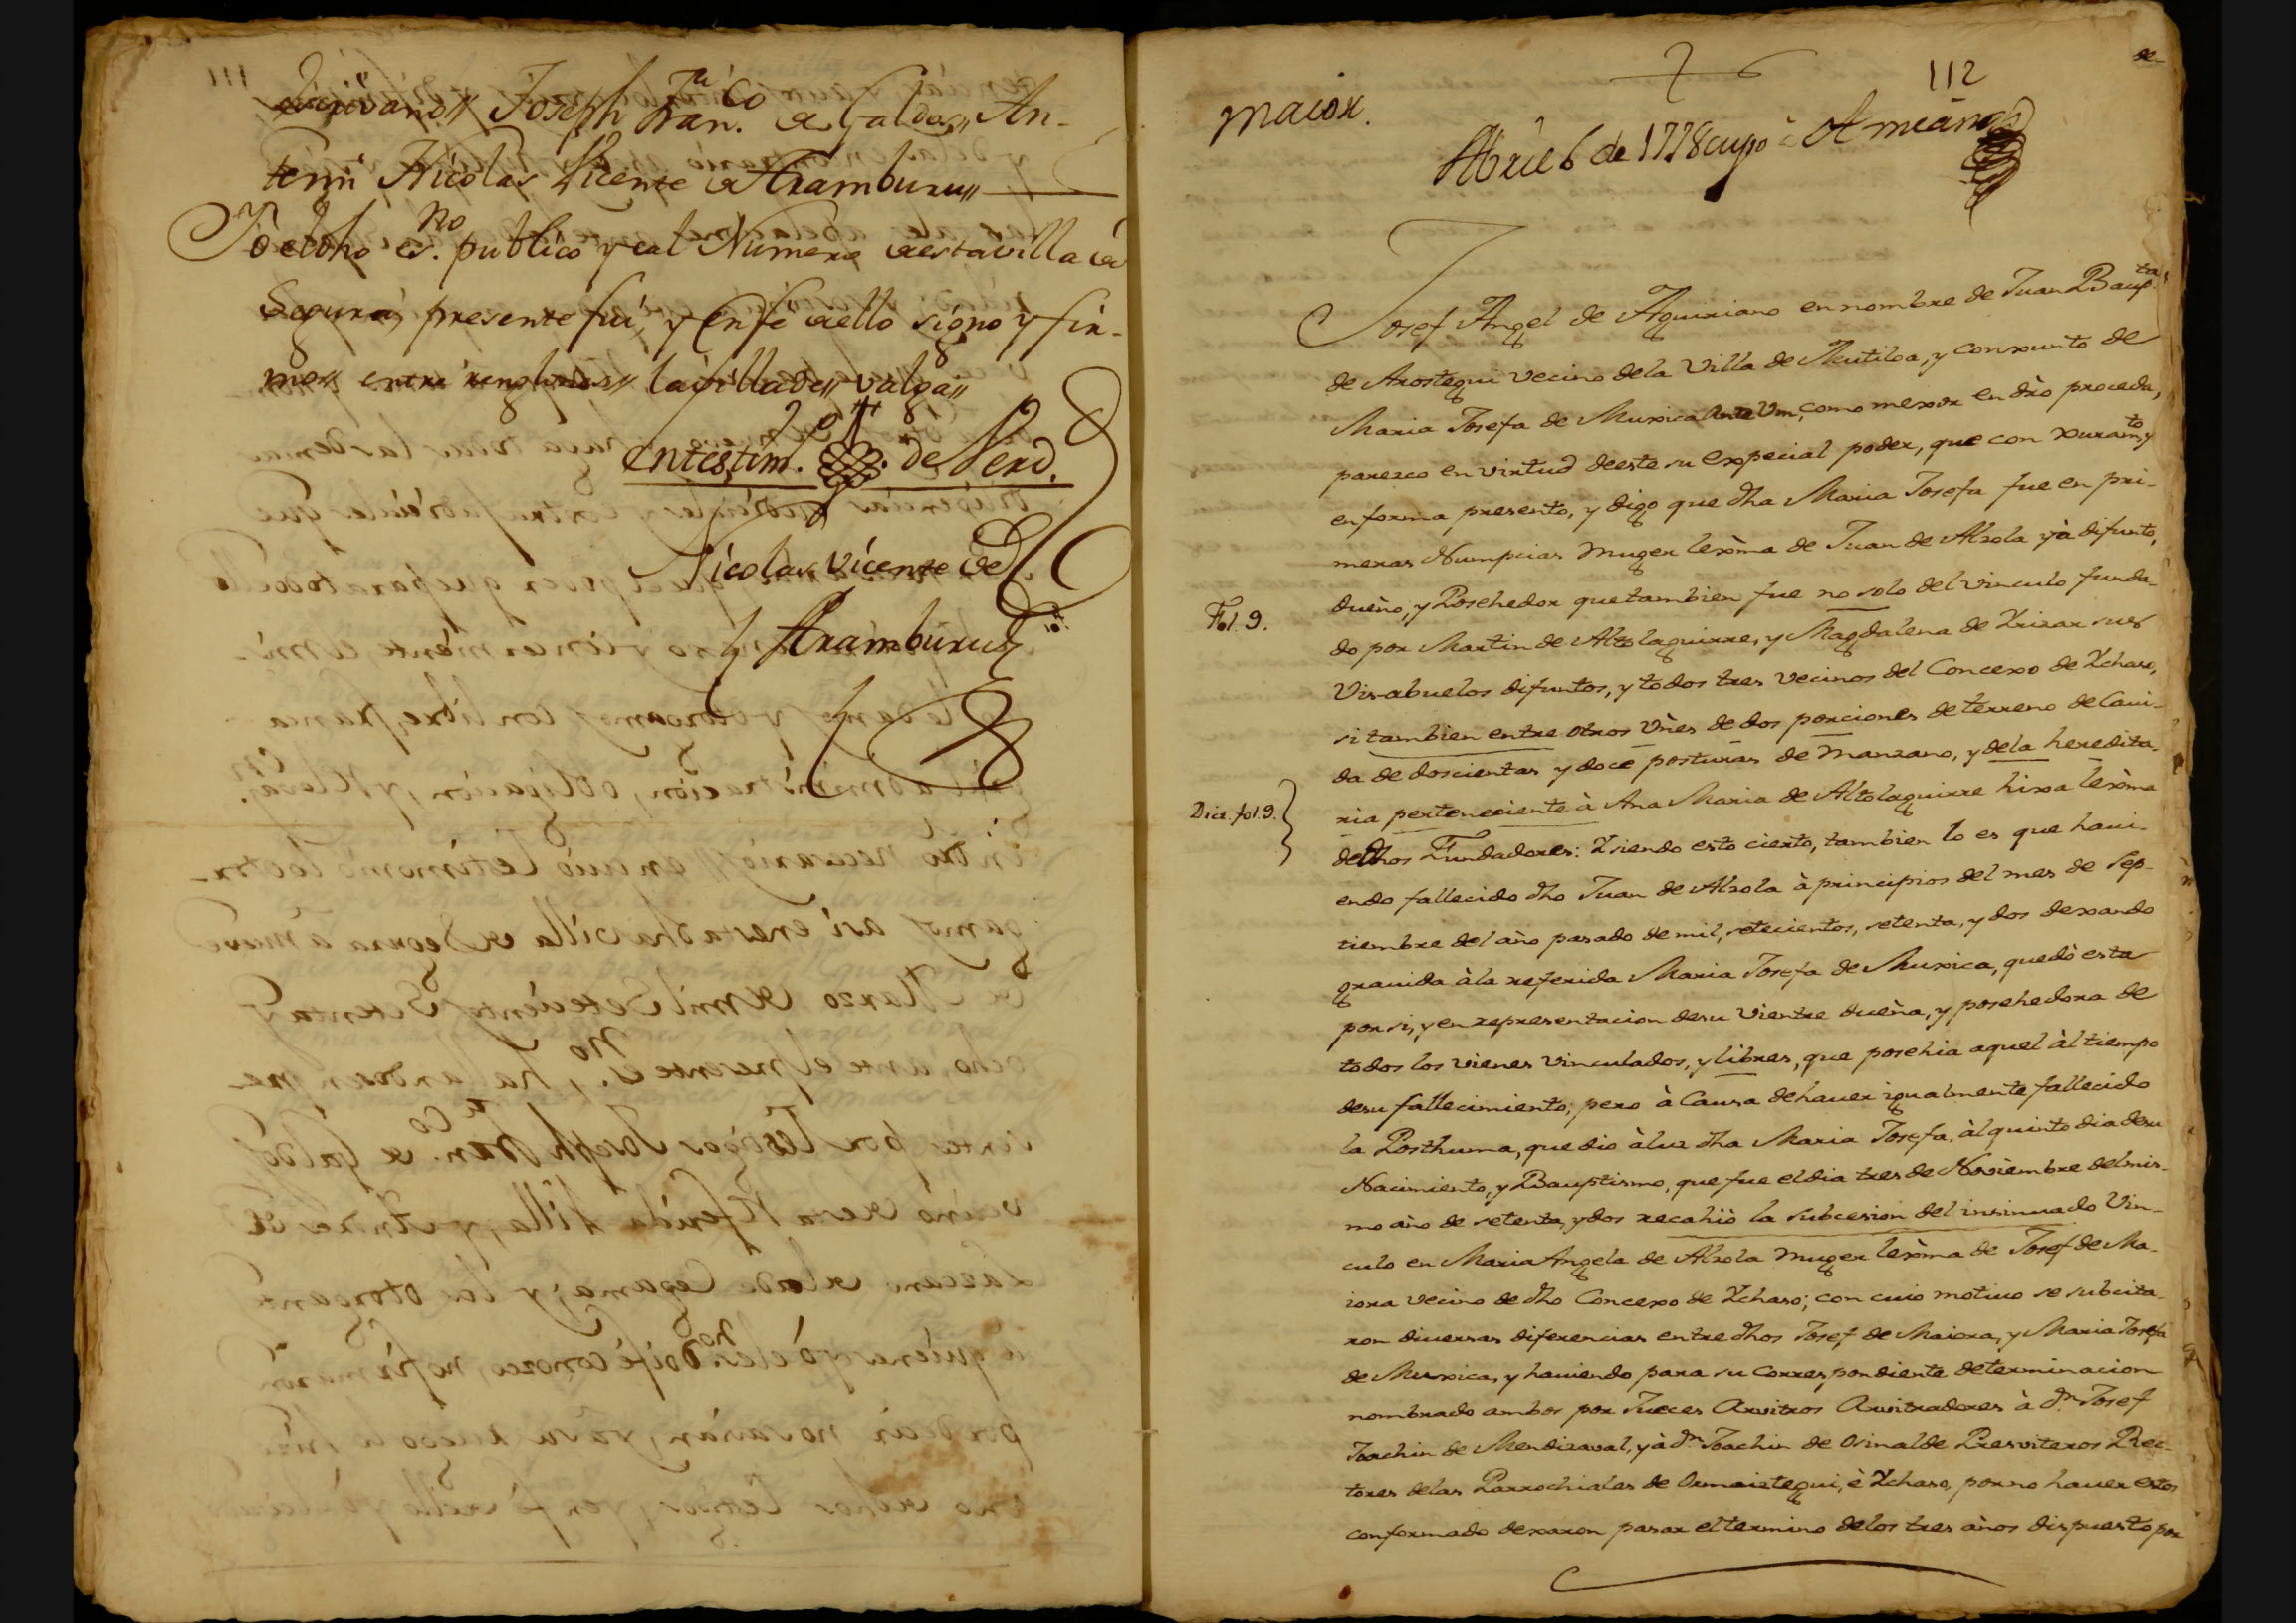 Escrivano,, Joseph Fran.co de Galdos,, An-
temi Nicolas Vicente de Aramburu,,
Yo el dho es.no publico y del Numero de esta villa de
Segura, presente fui, y en fe de ello signo y fir-
me,, entre renglones,, la villa de,, valga,,
En testim.o de Verd.
Nicolas Vicente de
Aramburu
112
Maior.
Abril 6 de 1778 cupo à Amiano
Josef Angel de Aguiriano en nombre de Juan Baup.ta
de Arostegui vecino de la Villa de Mutiloa, y conxunto de
Maria Josefa de Muxica Ante Vm, como mexor en dro proceda,
parezco en virtud de este su expecial poder, que con xuram.to
en forma presento, y digo que dha Maria Josefa fue en pri-
meras Numpcias muger lexma de Juan de Alzola yà difunto,
dueño, y Posehedor que tambien fue no solo del vinculo funda-
Fol. 9.
do por Martin de Altolaguirre, y Magdalena de Yrizar sus
Vis-abuelos difuntos, y todos tres vecinos del Concexo de Ychaso,
si tambien entre otros Vnes de dos porciones de terreno de Cavi-
da de doscientas y doce posturas de Manzano, y de la heredita-
Dict. fol. 9.
ria perteneciente à Ana Maria de Altolaguirre hixa lexma
de dhos Fundadores: Y siendo esto cierto, tambien lo es que havi-
endo fallecido dho Juan de Alzola à principios del mes de Sep-
tiembre del año pasado de mil, setecientos, setenta, y dos dexando
gravida à la referida Maria Josefa de Muxica, quedò esta
por si, y en representacion de su Vientre dueña, y posehedora de
todos los vienes vinculados, y libres, que posehia aquel àl tiempo
de su fallecimiento; pero à Causa de haver igualmente fallecido
la Posthuma, que dio à luz dha Maria Josefa, àl quinto dia de su
Nacimiento, y Bauptismo, que fue el dia tres de Noviembre del mis-
mo año de setenta, y dos recahiò la subcesion del insinuado Vin-
culo en Maria Angela de Alzola Muger lexma de Josef de Ma-
iora vecino de dho Concexo de Ychaso; con cuio motivo se subcita-
ron diversas diferencias entre dhos Josef de Maiora, y Maria Josefa
de Muxica, y haviendo para su correspondiente determinacion
nombrado ambos por Jueces Arvitros Arvitradores à dn Josef
Joachin de Mendizaval, y à dn Joachin de Osinalde Presviteros Rec-
tores de las Parrochiales de Ormaiztegui, è Ychaso, por no haver estos
conformado dexaron pasar el termino de los tres años dispuesto por